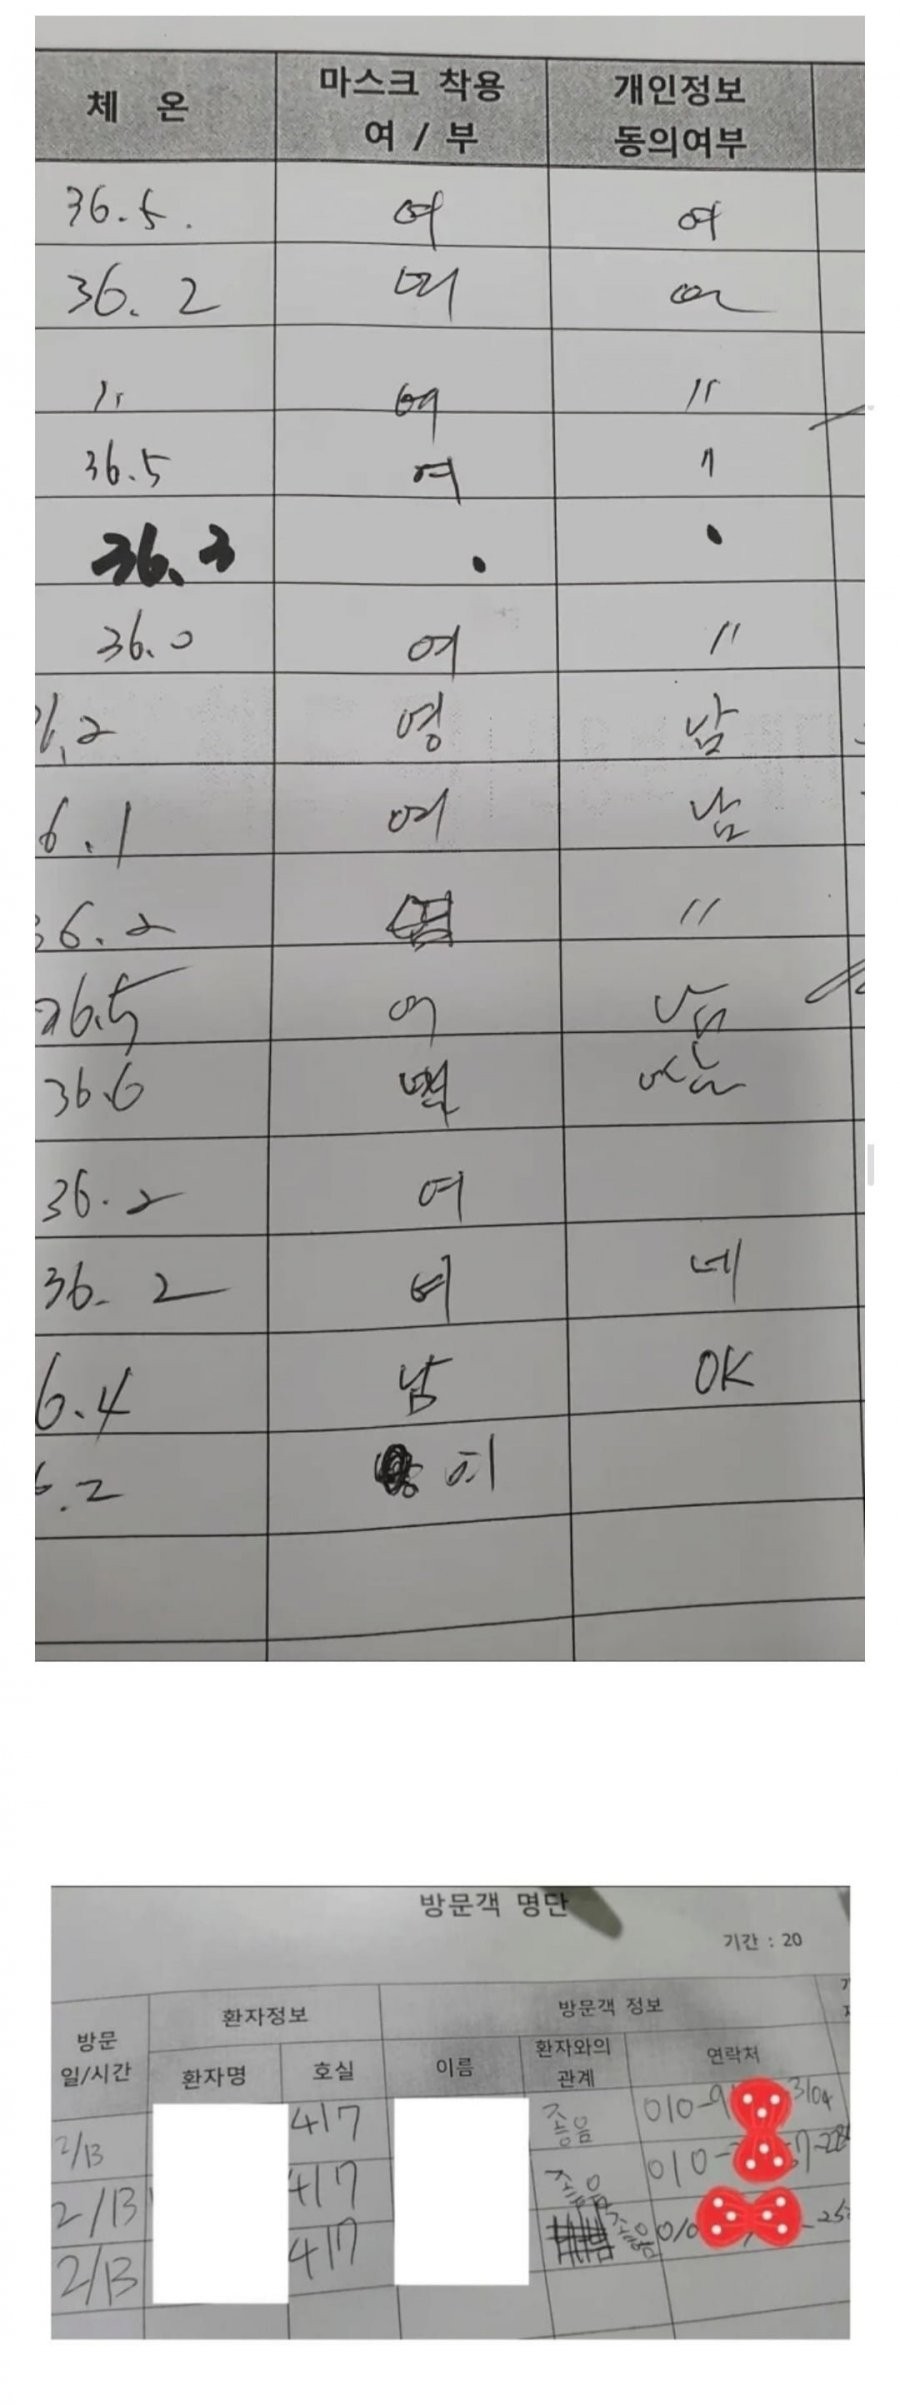 체 온 마스크 착용 여 / 부 개인정보 동의여부
36.5. 여 여
36. 2 여 여
〃 여 〃
36.5 여 〃
36.3 . .
36.0 여 〃
.2 영 남
6.1 여 남
36.2 〃
36.5 여 남
36.6 남
36.2 여
36. 2 여 네
6.4 남 OK
.2
방문객 명단
기간 : 20
방문 일/시간 환자정보 방문객 정보
환자명 호실 이름 환자와의 관계 연락처
2/13 417 좋음 010-9 3104
2/13 417 좋음 010-
2/13 417 좋음 010 -25